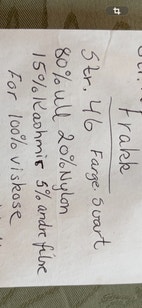 Frakk
Str. 46 Farge Svart
80% ull 20% Nylon
15% Kashmir 5% andre fibre
För 100% viskose